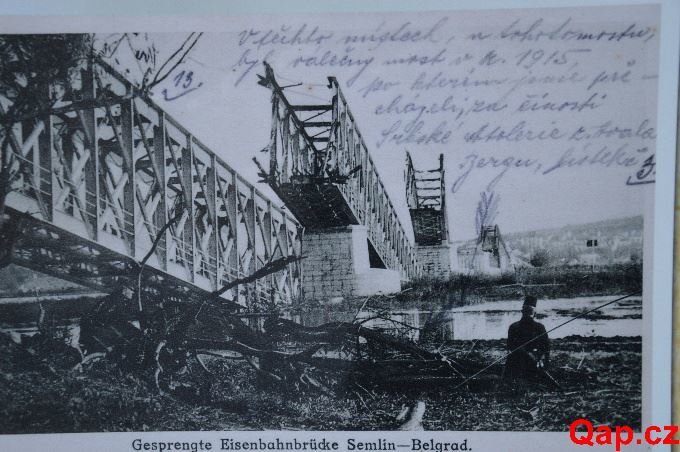 V těchto místech, u tohoto mostu,
byl válečný most v r. 1915
po kterém jsme při-
cházeli, za činosti
Srbské Atolerie z
13.
Gesprengte Eisenbahnbrücke Semlin—Belgrad.
Qap.cz